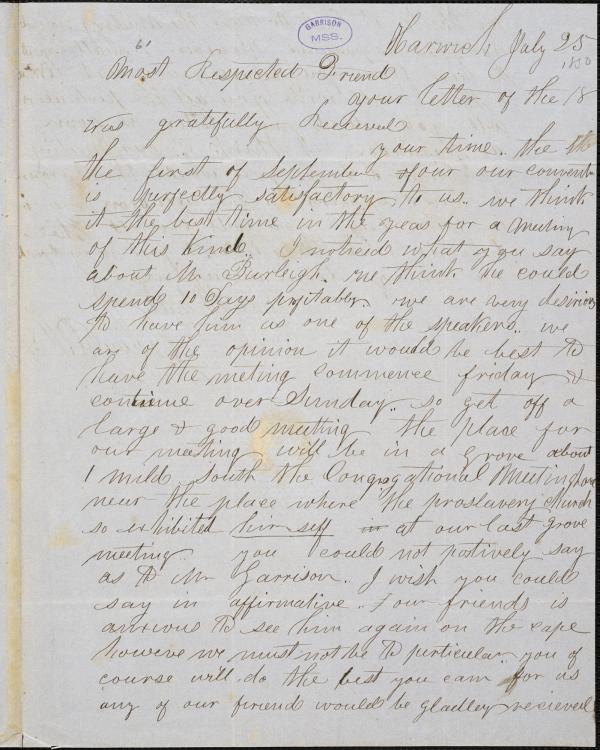 GARRISON
MSS.
Harwich July 25
1850
Most Respected Friend
your letter of the 18
was gratefully Recieved
your time.. the
the first of September for our convent
is purfectly satisfactory to us.. we think
it the best time in the yeas for a meeting
of this kind.. I noticed what you say
about Mr Burleigh. we think he could
spend 10 Days profitably we are very desirious
to have him as one of the speakers.. we
are of the opinion it would be best to
have the meting commence friday &
continue over Sunday.. so get off a
large & good meetting the place for
our meeting will be in a grove about
1 mild South the Congragational Meetinghouse
near the place where the proslavery church
so exhibited hir self at our last grove
meeting. you could not positively say
as to Mr Garrison. I wish you could
say in affirmative.. for our friends is
anxious to see him again on the cape
howeve we must not be to particular you of
course will do the best you can for us
any of our friend would be gladley recieved